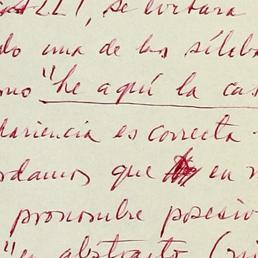 se evitara
do una de las sílaba
mo "he aquí la cas
pariencia es correcta
rdamos que en
pronombre posesiv
"en abstracto